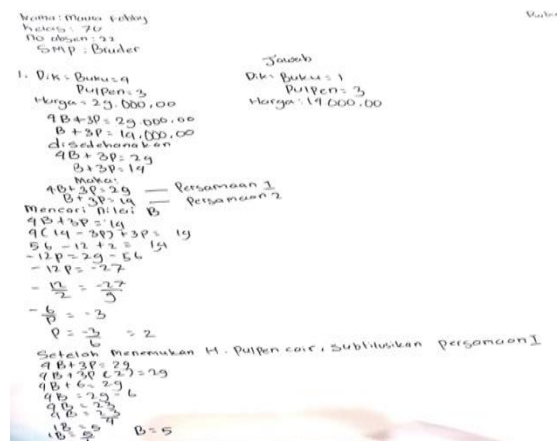 Nama : Maura Febby
Kelas : 7U
No absen : 22
SMP : Bruder
Jawab
1. Dik : Buku = 4
Pulpen = 3
Harga = 29.000,00
Dik : Buku = 1
Pulpen = 3
Harga : 14.000,00
4B + 3P = 29.000,00
B + 3P = 14.000,00
disedehanakan
4B + 3P = 29
B + 3P = 14
Maka :
4B + 3P = 29 — Persamaan 1
B + 3P = 14 — Persamaan 2
Mencari Nilai B
4B + 3P = 14
4(14 - 3P) + 3P = 19
56 - 12 + 2 = 14
-12P = 29 - 56
-12P = -27
- 12/2 = -27/9
- 6/P = -3
P = -3/6 = 2
Setelah Menemukan H. Pulpen cair, Subtitusikan Persamaan I
4B + 3P = 29
4B + 3P (2) = 29
4B + 6 = 29
4B = 29 - 6
4B = 23
1B = 5
B = 5